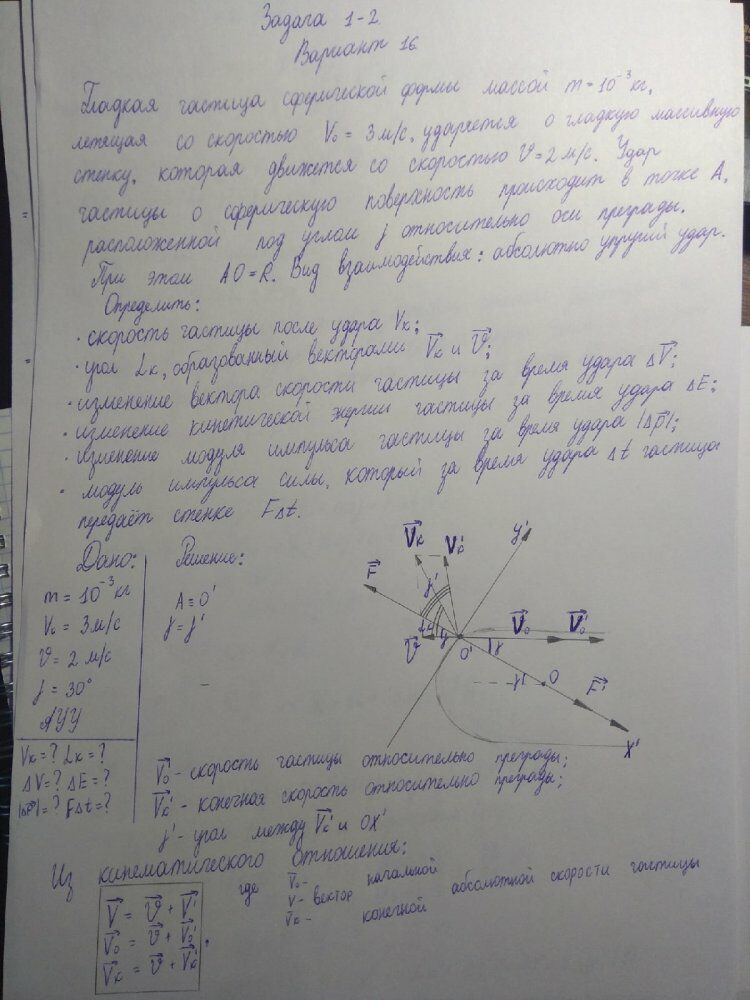 Задача 1-2
Вариант 16.
Гладкая частица сферической формы массой m = 10⁻³ кг,
летящая со скоростью V₀ = 3 м/с, ударяется о гладкую массивную
стенку, которая движется со скоростью υ = 2 м/с. Удар
частицы о сферическую поверхность происходит в точке А,
расположенной под углом γ относительно оси преграды.
При этом AO = R. Вид взаимодействия: абсолютно упругий удар.
Определить:
· скорость частицы после удара Vк;
· угол Lк, образованный векторами V⃗к и υ⃗;
· изменение вектора скорости частицы за время удара ΔV⃗;
· изменение кинетической энергии частицы за время удара ΔE;
· изменение модуля импульса частицы за время удара |Δp⃗|;
· модуль импульса силы, который за время удара Δt частица
передаёт стенке FΔt.
Дано:
m = 10⁻³ кг
V₀ = 3 м/с
υ = 2 м/с
γ = 30°
АУУ
Vк = ? Lк = ?
ΔV = ? ΔE = ?
|Δp⃗| = ? FΔt = ?
Решение:
A ≡ O'
γ = γ'
V⃗к V⃗к' y'
F⃗ γ'
υ⃗ γ O' γ V⃗₀ V⃗₀'
γ O F⃗'
X'
V⃗₀' - скорость частицы относительно преграды;
V⃗к' - конечная скорость относительно преграды;
γ' - угол между V⃗к' и OX'
Из кинематического отношения:
V⃗ = υ⃗ + V⃗'
V⃗₀ = υ⃗ + V⃗₀'
V⃗к = υ⃗ + V⃗к' ,
где V⃗₀ - начальной
V - вектор абсолютной скорости частицы
V⃗к - конечной